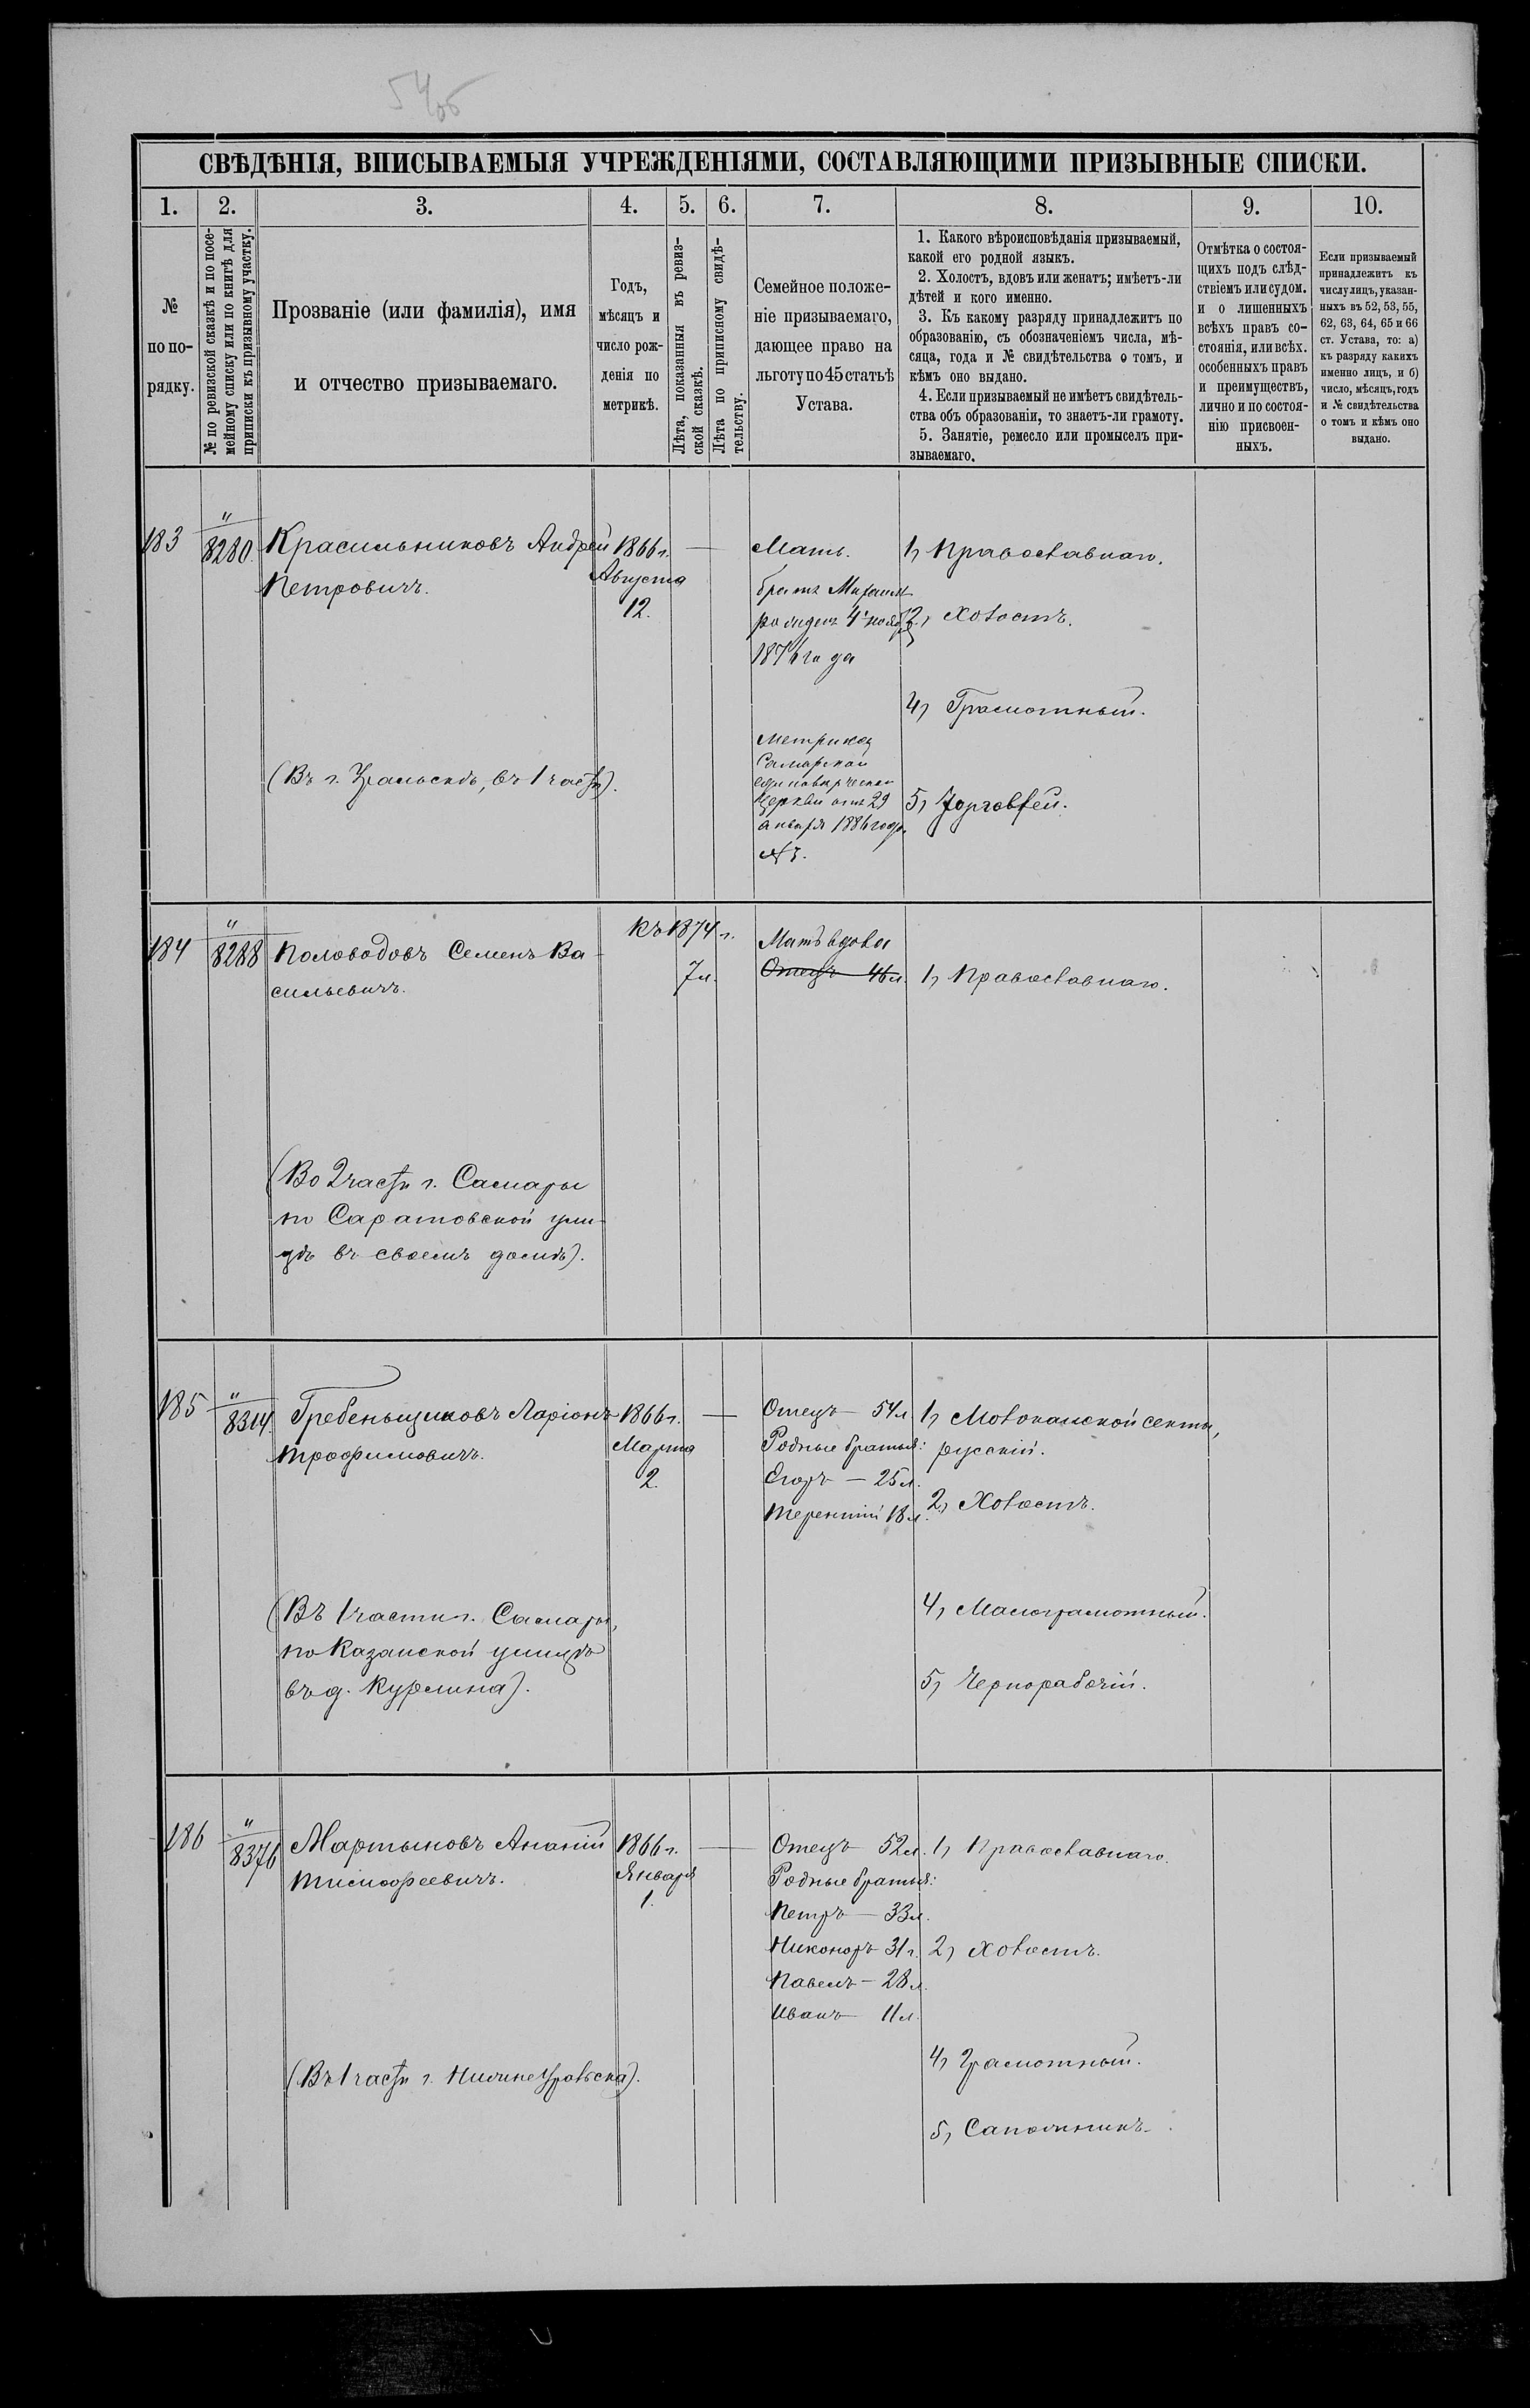 54об
СВѢДѢНІЯ, ВПИСЫВАЕМЫЯ УЧРЕЖДЕНІЯМИ, СОСТАВЛЯЮЩИМИ ПРИЗЫВНЫЕ СПИСКИ.
1. 2. 3. 4. 5. 6. 7. 8. 9. 10.
№
по по-
рядку.
№ по ревизской сказкѣ и по посе-
мейному списку или по книгѣ для
приписки къ призывному участку.
Прозваніе (или фамилія), имя
и отчество призываемаго.
Годъ,
мѣсяцъ и
число рож-
денія по
метрикѣ.
Лѣта, показанныя въ ревиз-
ской сказкѣ.
Лѣта по приписному свидѣ-
тельству.
Семейное положе-
ніе призываемаго,
дающее право на
льготу по 45 статьѣ
Устава.
1. Какого вѣроисповѣданія призываемый,
какой его родной языкъ.
2. Холостъ, вдовъ или женатъ; имѣетъ-ли
дѣтей и кого именно.
3. Къ какому разряду принадлежитъ по
образованію, съ обозначеніемъ числа, мѣ-
сяца, года и № свидѣтельства о томъ, и
кѣмъ оно выдано.
4. Если призываемый не имѣетъ свидѣтель-
ства объ образованіи, то знаетъ-ли грамоту.
5. Занятіе, ремесло или промыселъ при-
зываемаго.
Отмѣтка о состоя-
щихъ подъ слѣд-
ствіемъ или судомъ.
и о лишенныхъ
всѣхъ правъ со-
стоянія, или всѣх.
особенныхъ правъ
и преимуществъ,
лично и по состоя-
нію присвоен-
ныхъ.
Если призываемый
принадлежитъ къ
числу лицъ, указан-
ныхъ въ 52, 53, 55,
62, 63, 64, 65 и 66
ст. Устава, то: а)
къ разряду какихъ
именно лицъ, и б)
число, мѣсяцъ, годъ
и № свидѣтельства
о томъ и кѣмъ оно
выдано.
183
"
8280.
Красильниковъ Андрей
Петровичъ.
(Въ г. Уральскѣ, въ 1 части).
1866 г.
Августа
12.
—
Мать.
братъ Михаилъ
рожден 4 нояб.
1876 года
Метрика
Самарской
единовѣрческой
Церкви отъ 29
января 1886 года
№ 3.
1, Православнаго.
2, Холостъ.
4, Грамотный.
5, Торговлей.
184
"
8288
Половодовъ Семенъ Ва-
сильевичъ.
(Во 2 части г. Самары
по Саратовской ули-
цѣ въ своемъ домѣ).
къ 1874 г.
7 л.
Мать вдова
Отецъ 46 л.
1, Православнаго.
185
"
8314.
Гребеньщиковъ Ларіонъ
Трофимовичъ.
(Въ 1 части г. Самары,
по Казанской улицѣ
въ д. Курлина).
1866 г.
Марта
2.
—
Отецъ — 54 л.
Родные братья:
Егоръ — 25 л.
Терентій 18 л.
1, Молоканской секты,
русскій.
2, Холостъ.
4, Малограмотный.
5, Чернорабочій.
186
"
8376
Мартыновъ Ананій
Тимофеевичъ.
(Въ 1 части г. Нижнеуральска).
1866 г.
Января
1.
—
Отецъ 52 л.
Родные братья:
Петръ — 33 л.
Никоноръ 31 г.
Павелъ — 28 л.
Иванъ 11 л.
1, Православнаго.
2, Холостъ.
4, Грамотный.
5, Сапожникъ.